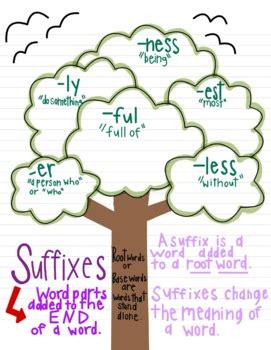 -ness
"being"
-ly
"do something"
-est
"most"
-ful
"full of"
-er
"a person who"
or "who"
-less
"without"
Root words
or
Base words
are
words that
stand
alone.
Suffixes
Word parts
added to the
END
of a word.
A suffix is a
word added
to a root word.
Suffixes change
the meaning of
a word.